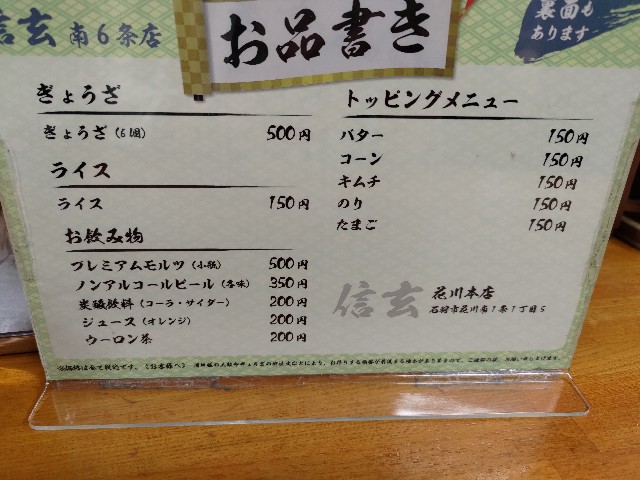 信玄 南6条店
お品書き
裏面も
あります
ぎょうざ
ぎょうざ(6個) 500円
ライス
ライス 150円
お飲み物
プレミアムモルツ(小瓶) 500円
ノンアルコールビール(各種) 350円
炭酸飲料(コーラ・サイダー) 200円
ジュース(オレンジ) 200円
ウーロン茶 200円
トッピングメニュー
バター 150円
コーン 150円
キムチ 150円
のり 150円
たまご 150円
信玄 花川本店
石狩市花川南1条1丁目5
※価格は全て税込です。《お客様へ》